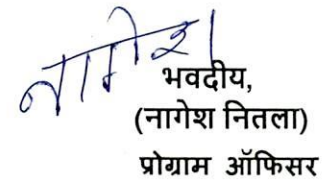 नागेश
भवदीय,
(नागेश नितला)
प्रोग्राम ऑफिसर